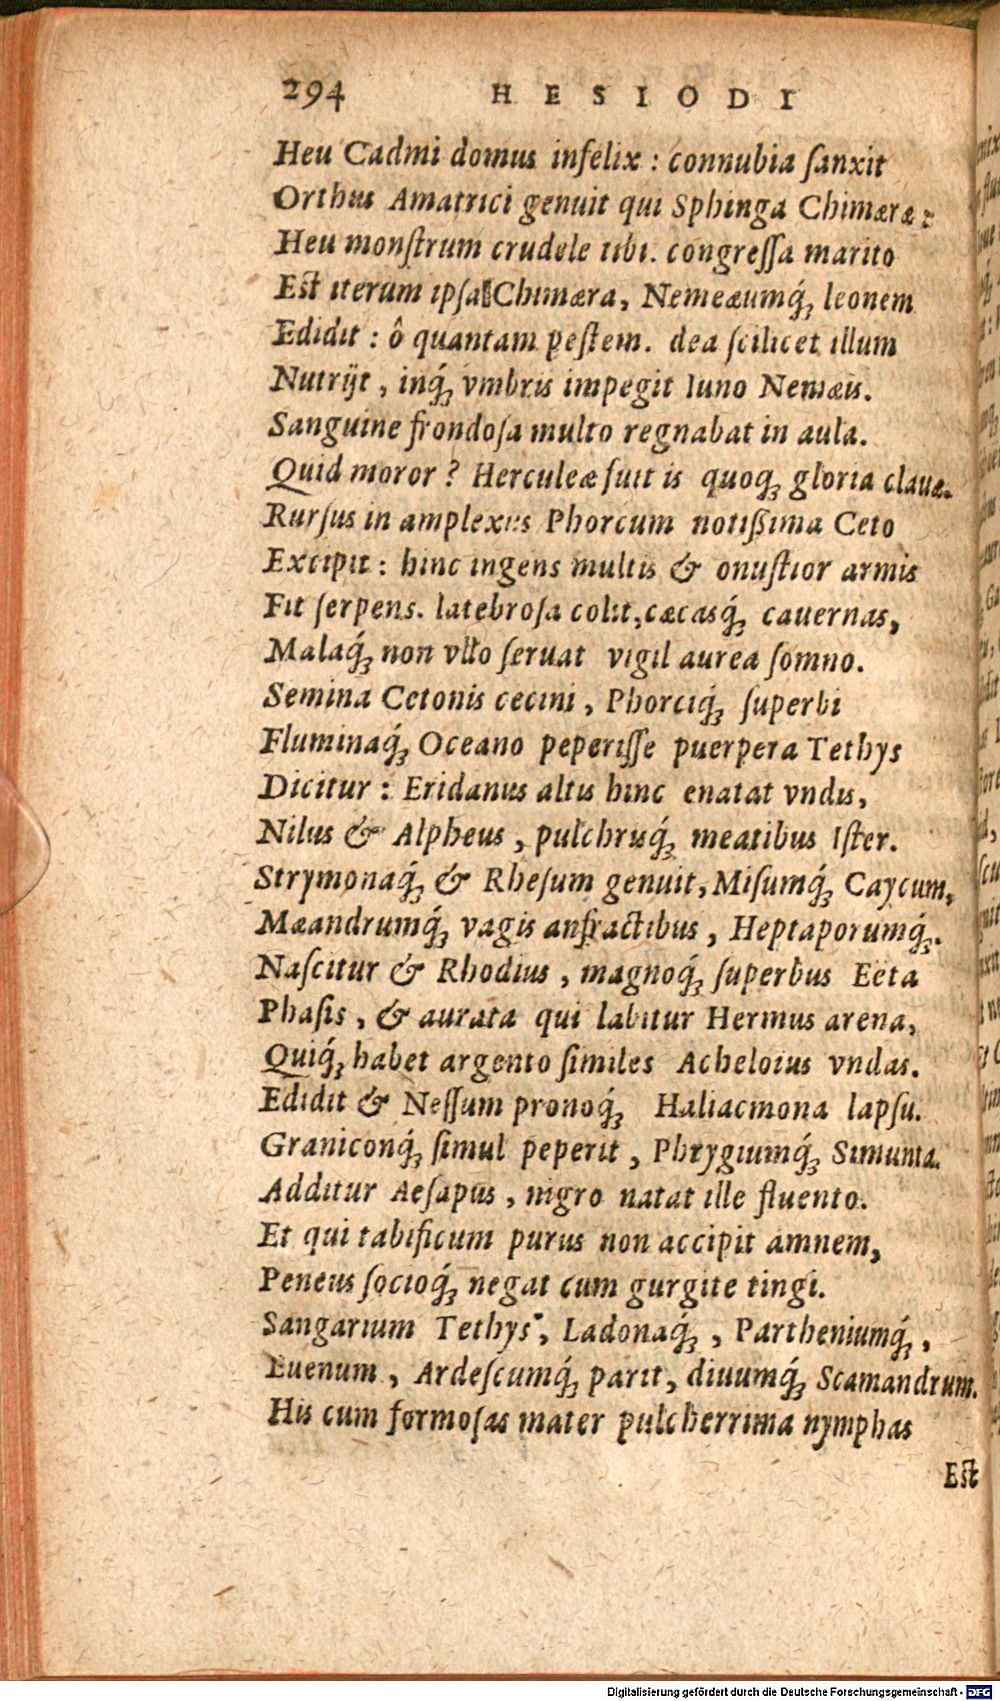 294 HESIODI
Heu Cadmi domus infelix : connubia ſanxit
Orthus Amatrici genuit qui Sphinga Chimæræ :
Heu monſtrum crudele tibi. congreſſa marito
Eſt iterum ipſa Chimæra, Nemeæumq́; leonem
Edidit : ô quantam peſtem. dea ſcilicet illum
Nutrijt , inq́; vmbris impegit Iuno Nemæis.
Sanguine frondoſa multo regnabat in aula.
Quid moror ? Herculeæ fuit is quoq; gloria clauæ.
Rurſus in amplexus Phorcum notißima Ceto
Excipit : hinc ingens multis & onuſtior armis
Fit ſerpens. latebroſa colit, cæcasq́; cauernas,
Malaq́; non vllo ſeruat vigil aurea ſomno.
Semina Cetonis cecini , Phorciq́; ſuperbi
Fluminaq́; Oceano peperiſſe puerpera Tethys
Dicitur : Eridanus altis hinc enatat vndis,
Nilus & Alpheus , pulchrisq́; meatibus Iſter.
Strymonaq́; & Rheſum genuit, Miſumq́; Caycum,
Mæandrumq́; vagis anfractibus , Heptaporumq́;.
Naſcitur & Rhodius , magnoq́; ſuperbus Eeta
Phaſis , & aurata qui labitur Hermus arena,
Quiq́; habet argento ſimiles Acheloius vndas.
Edidit & Neſſum pronoq́; Haliacmona lapſu.
Graniconq́; ſimul peperit , Phrygiumq́; Simunta.
Additur Aeſapus , nigro natat ille fluento.
Et qui tabificum purus non accipit amnem,
Peneus ſocioq́; negat cum gurgite tingi.
Sangarium Tethys , Ladonaq́; , Partheniumq́; ,
Euenum , Ardeſcumq́; parit, diuumq́; Scamandrum.
His cum formoſas mater pulcherrima nymphas
Eſt
Digitalisierung gefördert durch die Deutsche Forschungsgemeinschaft - DFG